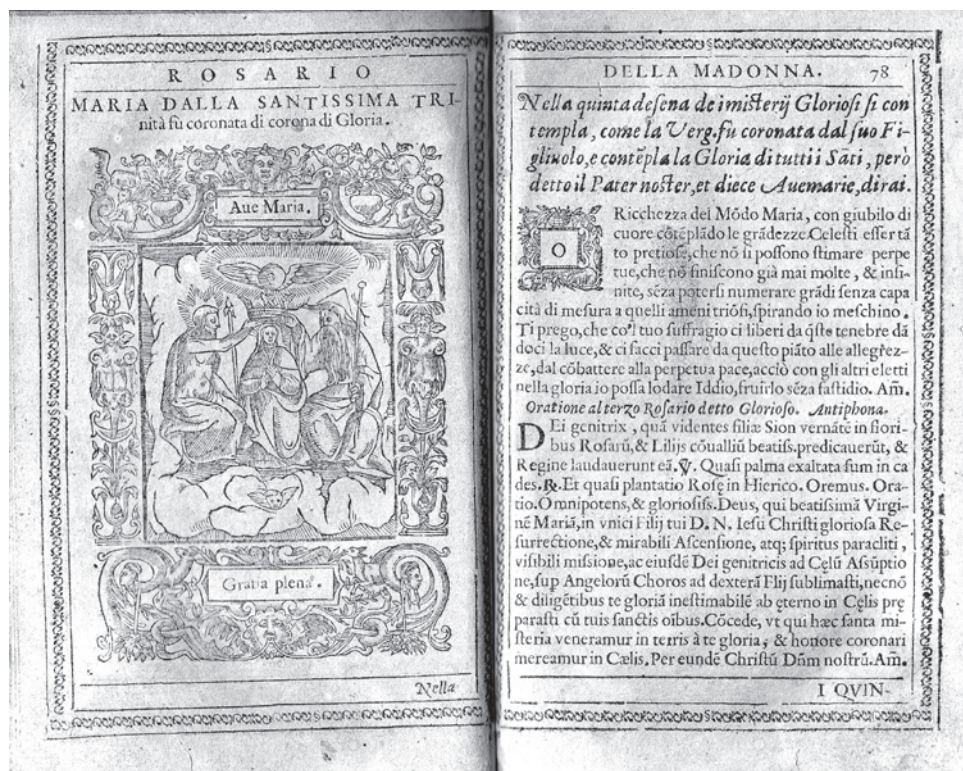 ROSARIO
MARIA DALLA SANTISSIMA TRI-
nità fu coronata di corona di Gloria.
Aue Maria.
Gratia plena.
Nella
DELLA MADONNA. 78
Nella quinta desena de i misterij Gloriosi si con
templa, come la Verg. fu coronata dal suo Fi-
gliuolo, e contẽpla la Gloria di tutti i Sãti, però
detto il Pater noster, et diece Auemarie, dirai.
O Ricchezza del Mõdo Maria, con giubilo di
cuore cõtẽplãdo le grãdezze Celesti esser tã
to pretiose, che nõ si possono stimare perpe
tue, che nõ finiscono già mai molte, & infi-
nite, sẽza potersi numerare grãdi senza capa
cità di mesura a quelli ameni triõfi, spirando io meschino.
Ti prego, che co'l tuo suffragio ci liberi da q̃ste tenebre dã
doci la luce, & ci facci passare da questo piãto alle allegrez-
ze, dal cõbattere alla perpetua pace, acciò con gli altri eletti
nella gloria io possa lodare Iddio, fruirlo sẽza fastidio. Am̃.
Oratione al terzo Rosario detto Glorioso. Antiphona.
DEi genitrix, quã videntes filiæ Sion vernãtẽ in flori-
bus Rosarũ, & Lilijs cõualliũ beatiss. predicauerũt, &
Regine laudauerunt eã. ℣. Quasi palma exaltata sum in ca
des. ℟. Et quasi plantatio Rosę in Hierico. Oremus. Ora-
tio. Omnipotens, & gloriosiss. Deus, qui beatissimã Virgi-
nẽ Mariã, in vnici Filij tui D. N. Iesu Christi gloriosa Re-
surrectione, & mirabili Ascensione, atq; spiritus paracliti,
visibili missione, ac eiusdẽ Dei genitricis ad Cęlũ Assũptio
ne, sup Angelorũ Choros ad dexterã Flij sublimasti, necnõ
& diligẽtibus te gloriã inestimabilẽ ab ęterno in Cęlis pre
parasti cũ tuis sanctis oibus. Cõcede, vt qui hæc santa mi-
steria veneramur in terris à te gloria, & honore coronari
mereamur in Cælis. Per eundẽ Christũ Dñm nostrũ. Am̃.
I QVIN-